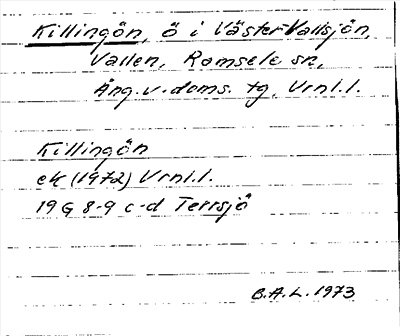 Killingön, ö i Väster-Vallsjön,
Vallen, Ramsele sn,
Ång.v.doms. tg, Vrnl.l.
Killingön
ek (1972) Vrnl.l.
19 G 8-9 c-d Terrsjö
B.A.L. 1973